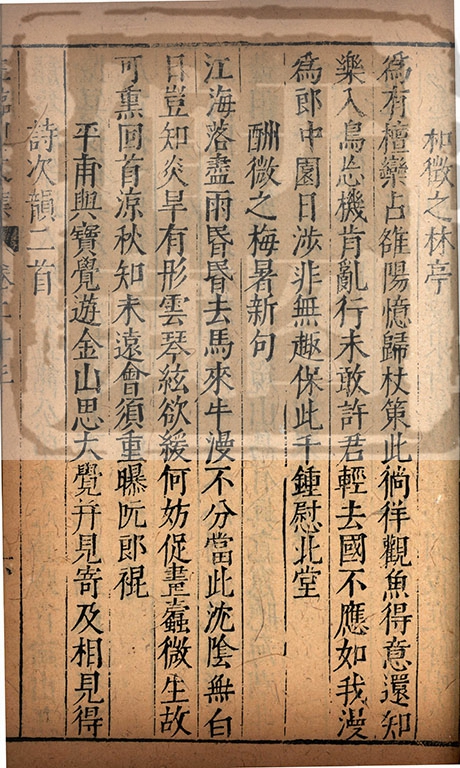 和微之林亭
為有檀欒占雒陽憶歸杖策此徜徉觀魚得意還知
樂入鳥忘機肯亂行未敢許君輕去國不應如我漫
為郎中園日涉非無趣保此千鍾慰北堂
酬微之梅暑新句
江海落盡雨昏昏去馬來牛漫不分當此沈陰無白
日豈知炎旱有彤雲琴絃欲緩何妨促畫蠧微生故
可熏回首涼秋知未遠會須重曝阮郎裩
平甫與寶覺遊金山思大覺并見寄及相見得
詩次韻二首